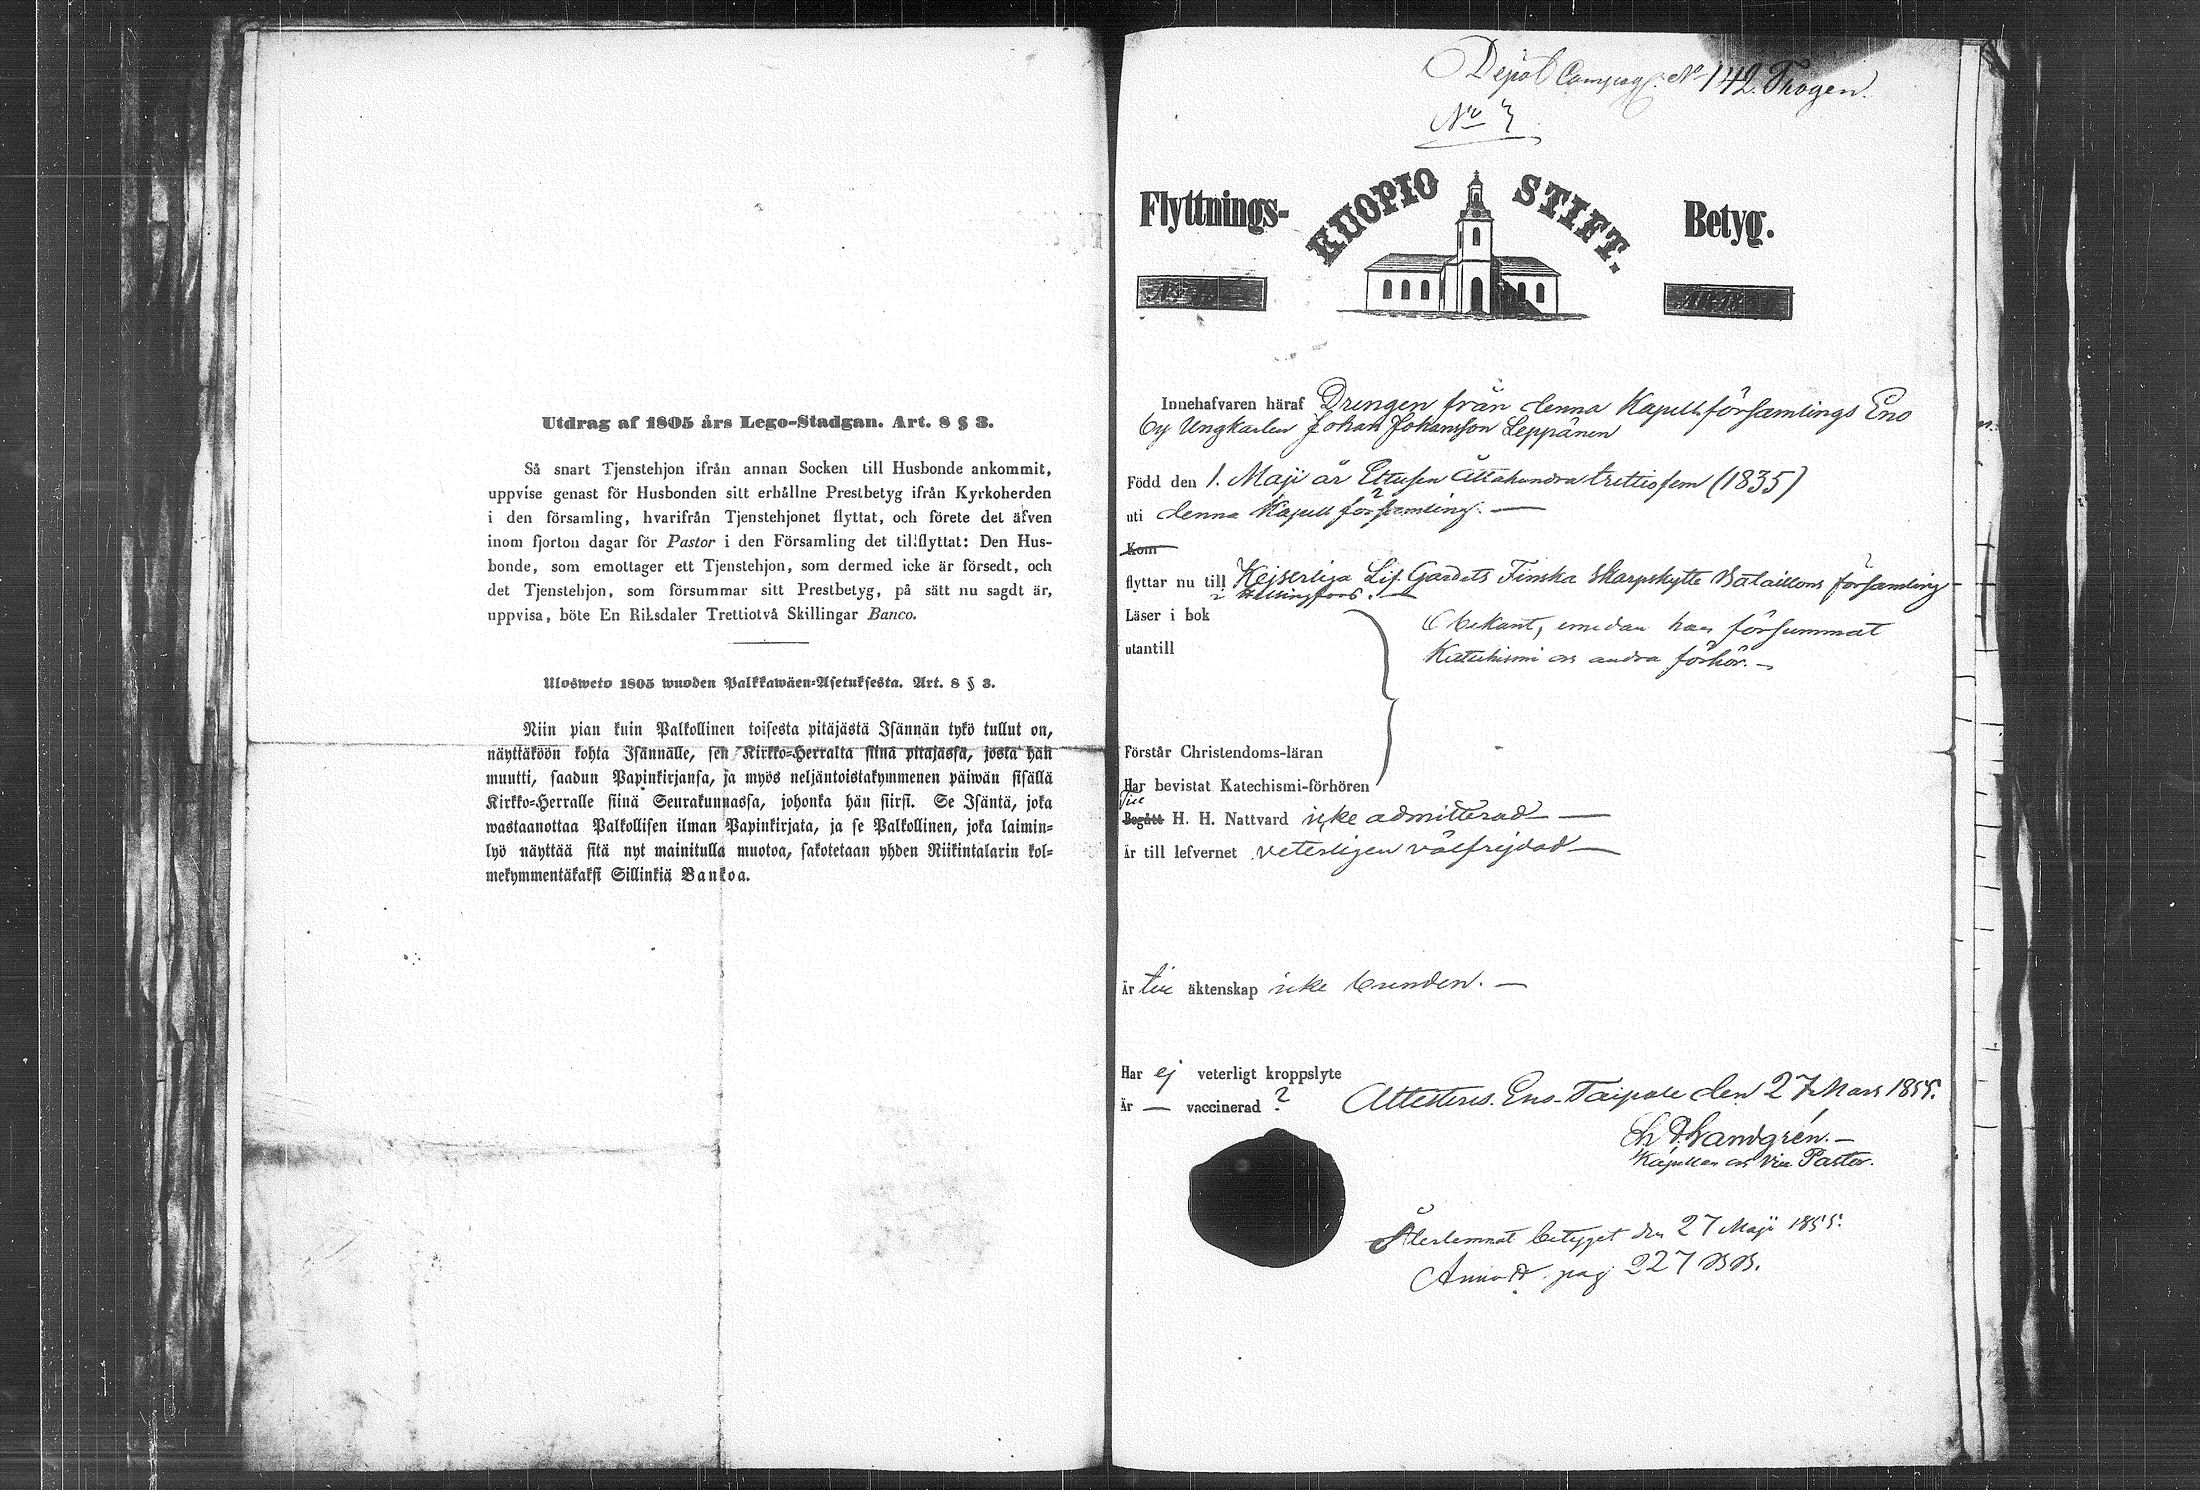 Utdrag af 1805 års Lego-Stadgan. Art. 8 § 3.
Så snart Tjenstehjon ifrån annan Socken till Husbonde ankommit,
uppvise genast för Husbonden sitt erhållne Prestbetyg ifrån Kyrkoherden
i den församling, hvarifrån Tjenstehjonet flyttat, och förete det äfven
inom fjorton dagar för Pastor i den Församling det tillflyttat: Den Hus-
bonde, som emottager ett Tjenstehjon, som dermed icke är försedt, och
det Tjenstehjon, som försummar sitt Prestbetyg, på sätt nu sagdt är,
uppvisa, böte En Riksdaler Trettiotvå Skillingar Banco.
Ulosweto 1805 wuoden Palkkawäen-Asetuksesta. Art. 8 § 3.
Niin pian kuin Palkollinen toisesta pitäjästä Isännän tykö tullut on,
näyttäköön kohta Isännälle, sen Kirkko-Herralta siinä pitäjässä, josta hän
muutti, saadun Papinkirjansa, ja myös neljäntoistakymmenen päiwän sisällä
Kirkko-Herralle siinä Seurakunnassa, johonka hän siirsi. Se Isäntä, joka
wastaanottaa Palkollisen ilman Papinkirjata, ja se Palkollinen, joka laimin-
lyö näyttää sitä nyt mainitulla muotoa, sakotetaan yhden Riikintalarin kol-
mekymmentäkaksi Sillinkiä Bankoa.
Depôt Compag. No 142. Thogen.
No 7
Flyttnings- KUOPIO STIFT. Betyg.
Innehafvaren häraf Drengen från denna Kapellförsamlings Eno
by Ungkarlen Johan Johansson Leppänen
Född den 1. Maji år Ettusen åttahundra trettiofem (1835)
uti denna Kapellförsamling. —
Kom
flyttar nu till Kejserliga Lif Gardets Finska Skarpskytte Bataillons församling
i Helsingfors. —
Läser i bok
Obekant, emedan han försummat
utantill
Katechismi och andra förhör. —
Förstår Christendoms-läran
Har bevistat Katechismi-förhören
Till
Begått H. H. Nattvard icke admitterad —
Är till lefvernet veterligen välfrejdad —
Är till äktenskap icke bunden. —
Har ej veterligt kroppslyte
Är — vaccinerad ?
Attesteras. Eno-Taipale den 27 Mars 1855.
Landgrén. —
Kapellan och Vice Pastor.
Återlemnat betyget den 27 Maji 1855.
pag 227